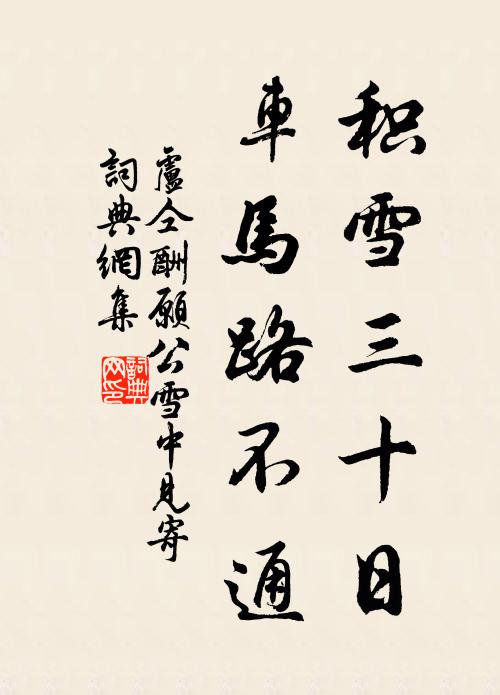 积雪三十日
車馬路不通
盧仝酬願公雪中見寄
詞典網集
詞典
网印